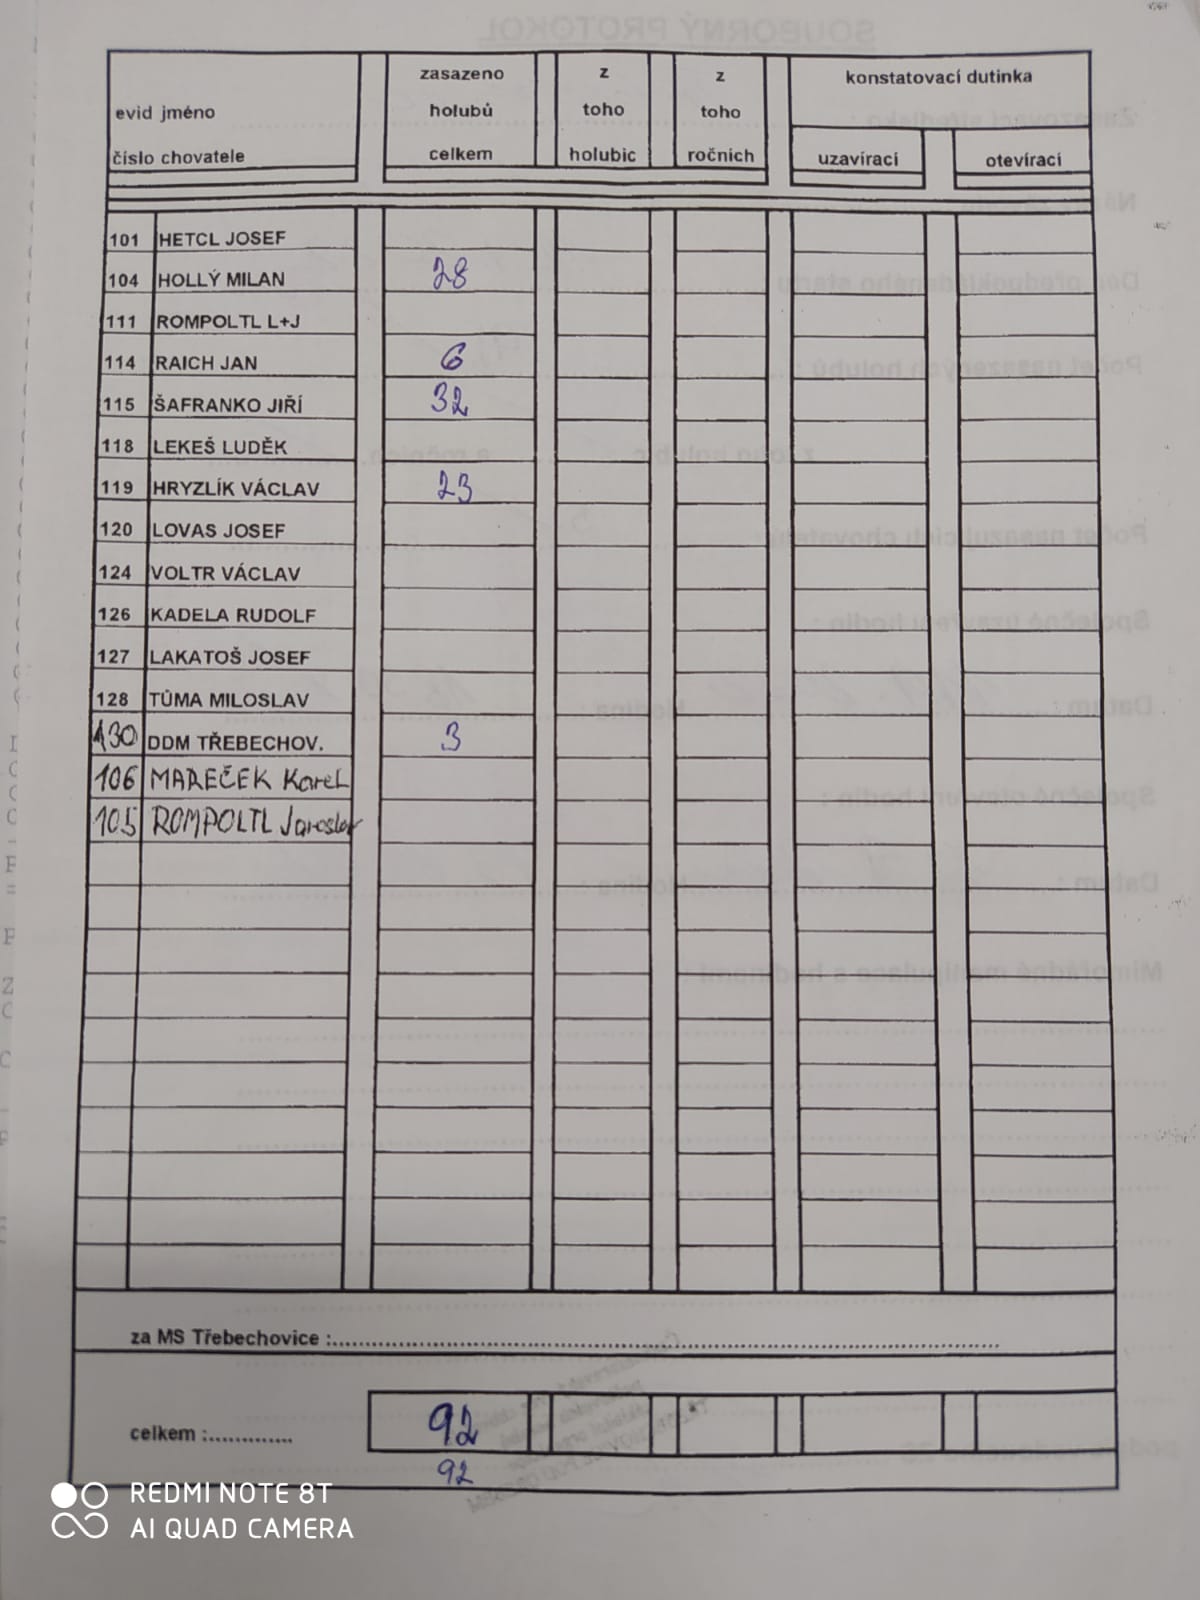 zasazeno z z konstatovací dutinka
evid jméno holubů toho toho
číslo chovatele celkem holubic ročních uzavírací otevírací
101 HETCL JOSEF
104 HOLLÝ MILAN 28
111 ROMPOLTL L+J
114 RAICH JAN 6
115 ŠAFRANKO JIŘÍ 32
118 LEKEŠ LUDĚK
119 HRYZLÍK VÁCLAV 23
120 LOVAS JOSEF
124 VOLTR VÁCLAV
126 KADELA RUDOLF
127 LAKATOŠ JOSEF
128 TŮMA MILOSLAV
130 DDM TŘEBECHOV. 3
106 MAREČEK Karel
105 ROMPOLTL Jaroslav
za MS Třebechovice :
celkem :.............. 92
92
REDMI NOTE 8T
AI QUAD CAMERA